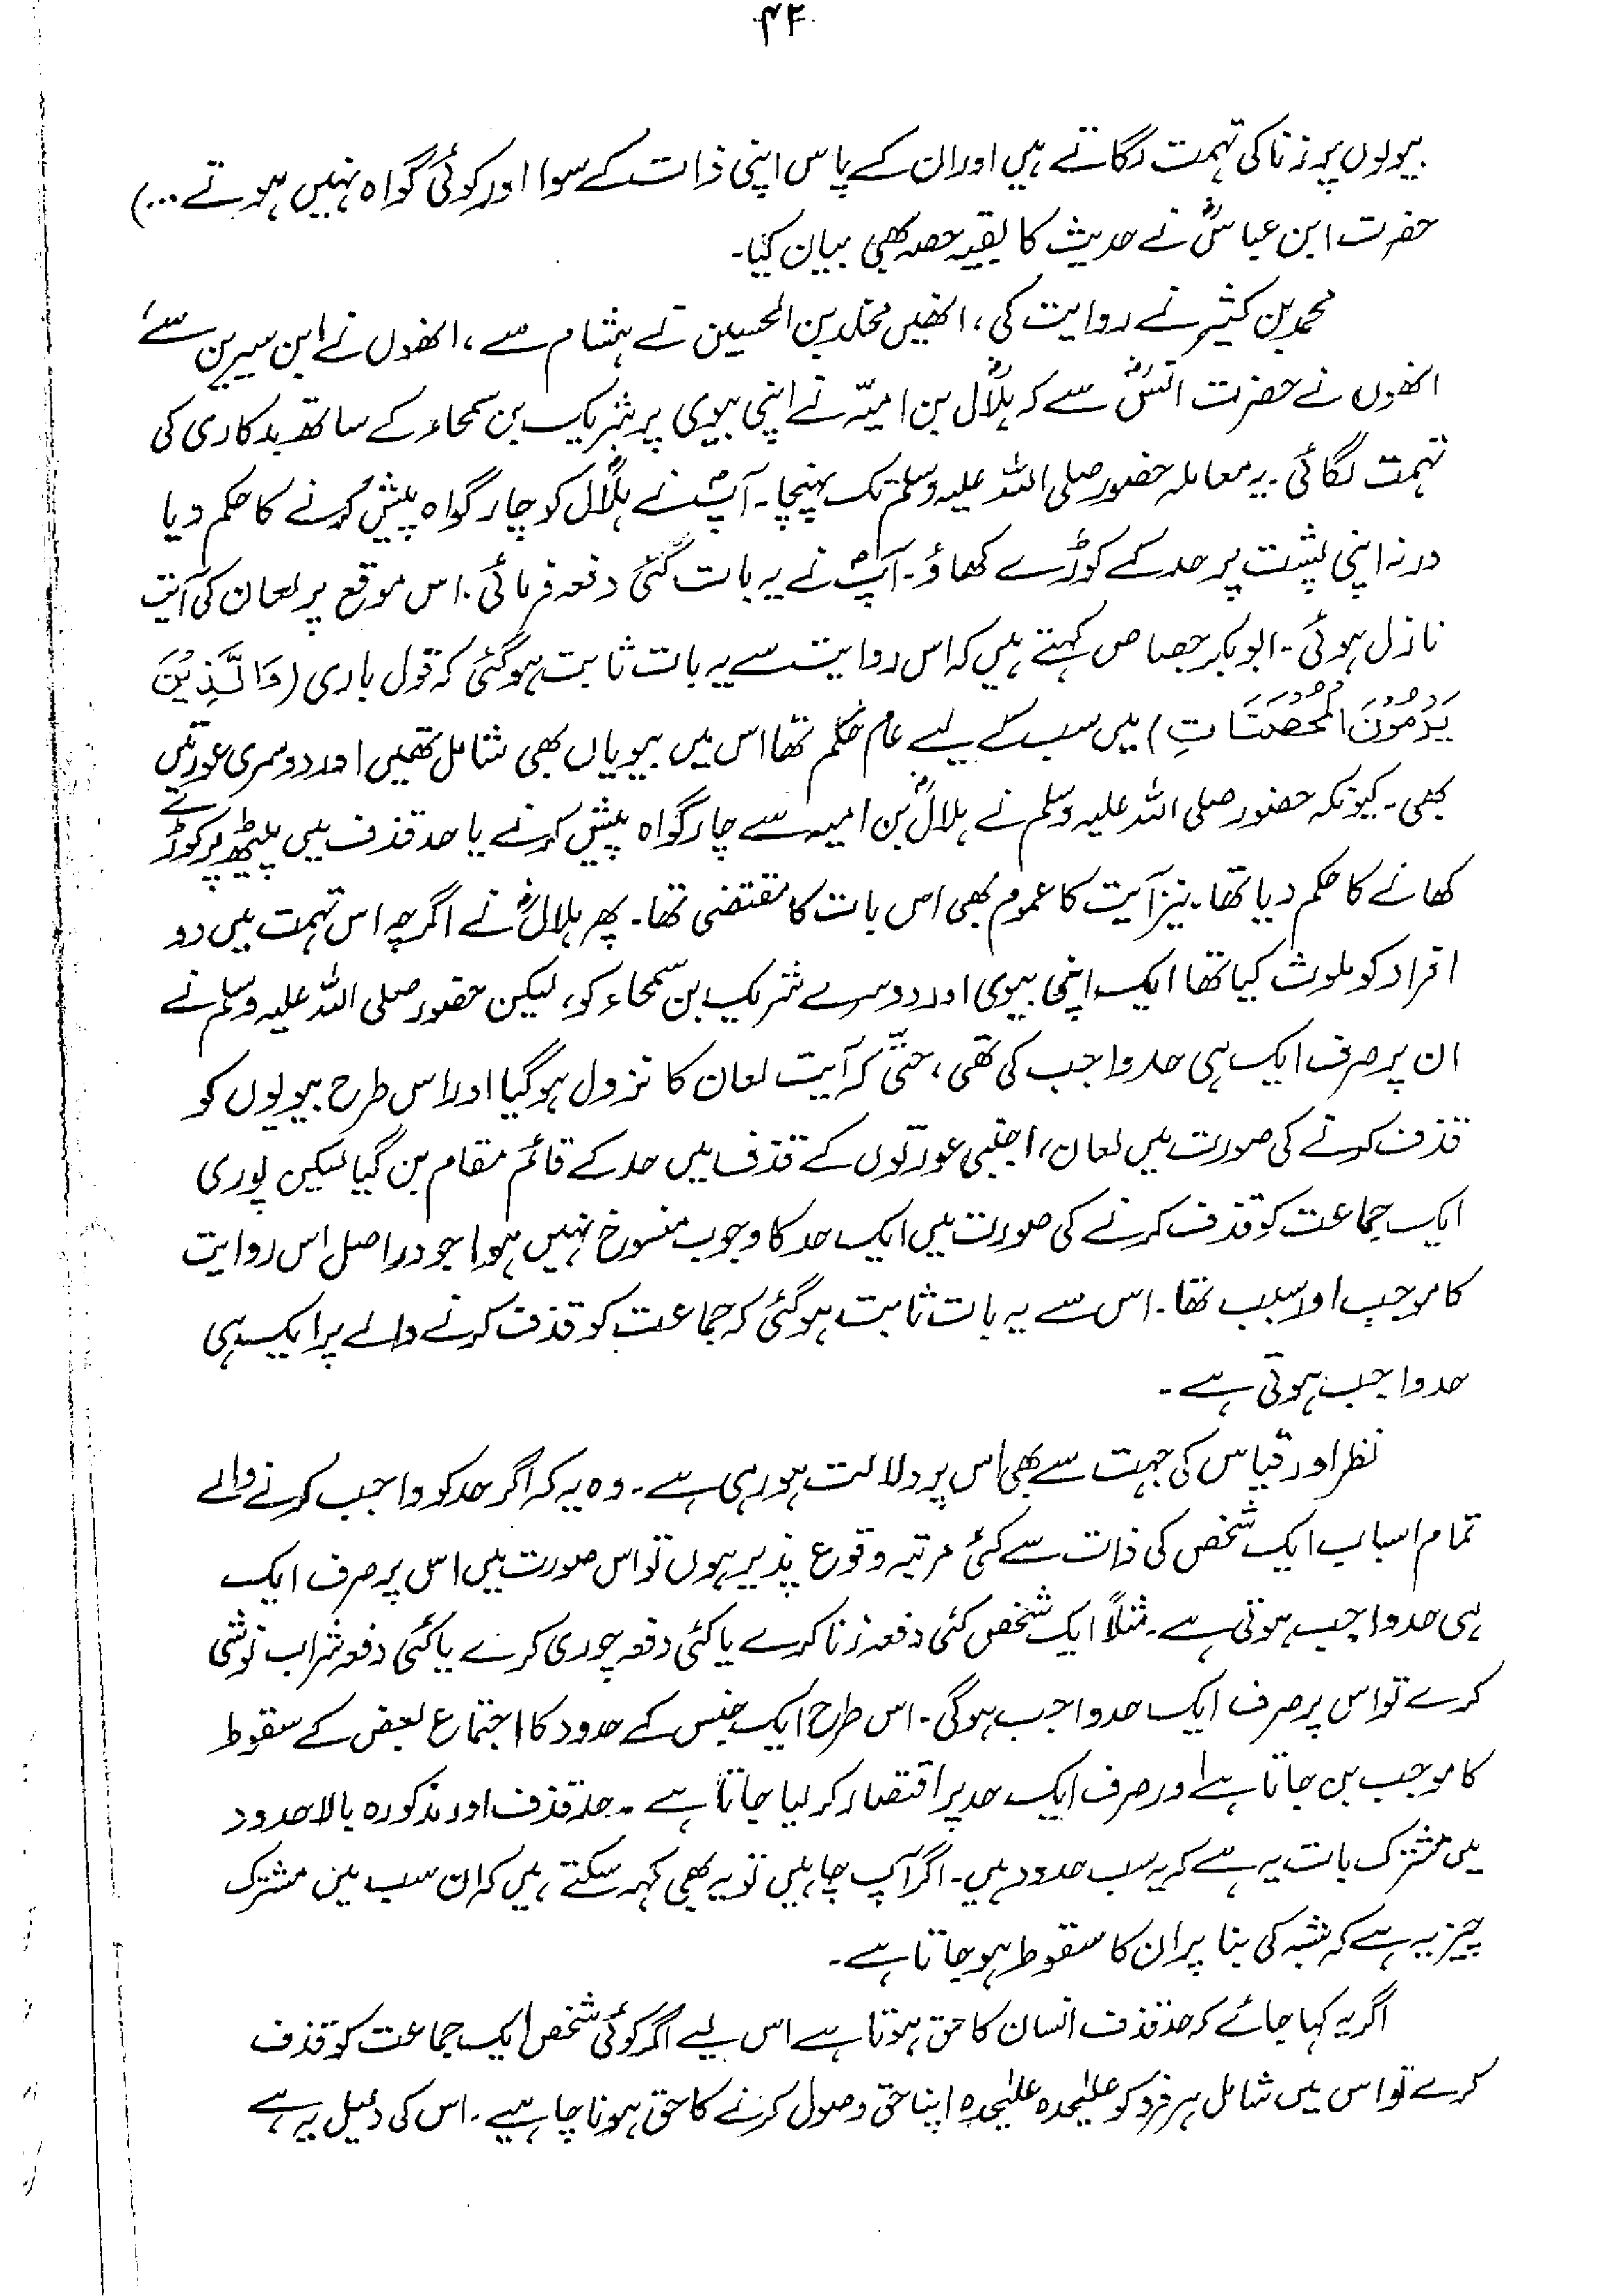 ۴۲
بیویوں پر زنا کی تہمت لگاتے ہیں اور ان کے پاس اپنی ذات کے سوا اور کوئی گواہ نہیں ہوتے ...)
حضرت ابن عباسؓ نے حدیث کا بقیہ حصہ بھی بیان کیا۔
محمد بن کثیر نے روایت کی، انھیں مخلد بن الحسین نے ہشام سے، انھوں نے ابن سیرین سے
انھوں نے حضرت انسؓ سے کہ ہلالؓ بن امیہ نے اپنی بیوی پر شریک بن سحماء کے ساتھ بدکاری کی
تہمت لگائی۔ یہ معاملہ حضور صلی اللہ علیہ وسلم تک پہنچا۔ آپؐ نے ہلالؓ کو چار گواہ پیش کرنے کا حکم دیا
ورنہ اپنی پشت پر حد کے کوڑے کھاؤ۔ آپؐ نے یہ بات کئی دفعہ فرمائی۔ اس موقع پر لعان کی آیت
نازل ہوئی۔ ابوبکر جصاص کہتے ہیں کہ اس روایت سے یہ بات ثابت ہوگئی کہ قول باری (وَالَّذِیْنَ
یَرْمُوْنَ الْمُحْصَنَاتِ) میں سب کے لیے عام حکم تھا اس میں بیویاں بھی شامل تھیں اور دوسری عورتیں
بھی۔ کیونکہ حضور صلی اللہ علیہ وسلم نے ہلالؓ بن امیہ سے چار گواہ پیش کرنے یا حد قذف میں پیٹھ پر کوڑے
کھانے کا حکم دیا تھا۔ نیز آیت کا عموم بھی اس بات کا مقتضی تھا۔ پھر ہلالؓ نے اگرچہ اس تہمت میں دو
افراد کو ملوث کیا تھا ایک اپنی بیوی اور دوسرے شریک بن سحماء کو، لیکن حضور صلی اللہ علیہ وسلم نے
ان پر صرف ایک ہی حد واجب کی تھی، حتّٰی کہ آیت لعان کا نزول ہوگیا اور اس طرح بیویوں کو
قذف کرنے کی صورت میں لعان، اجنبی عورتوں کے قذف میں حد کے قائم مقام بن گیا لیکن پوری
ایک جماعت کو قذف کرنے کی صورت میں ایک حد کا وجوب منسوخ نہیں ہوا جو دراصل اس روایت
کا موجب اور سبب تھا۔ اس سے یہ بات ثابت ہوگئی کہ جماعت کو قذف کرنے والے پر ایک ہی
حد واجب ہوتی ہے۔
نظر اور قیاس کی جہت سے بھی اس پر دلالت ہو رہی ہے۔ وہ یہ کہ اگر حد کو واجب کرنے والے
تمام اسباب ایک شخص کی ذات سے کئی مرتبہ وقوع پذیر ہوں تو اس صورت میں اس پر صرف ایک
ہی حد واجب ہوتی ہے۔ مثلاً ایک شخص کئی دفعہ زنا کرے یا کئی دفعہ چوری کرے یا کئی دفعہ شراب نوشی
کرے تو اس پر صرف ایک حد واجب ہوگی۔ اس طرح ایک جنس کے حدود کا اجتماع بعض کے سقوط
کا موجب بن جاتا ہے اور صرف ایک حد پر اقتصار کر لیا جاتا ہے۔ حد قذف اور مذکورہ بالا حدود
میں مشترک بات یہ ہے کہ یہ سب حدود ہیں۔ اگر آپ چاہیں تو یہ بھی کہہ سکتے ہیں کہ ان سب میں مشترک
چیز یہ ہے کہ شبہ کی بنا پر ان کا سقوط ہو جاتا ہے۔
اگر یہ کہا جائے کہ حد قذف انسان کا حق ہوتا ہے اس لیے اگر کوئی شخص ایک جماعت کو قذف
کرے تو اس میں شامل ہر فرد کو علیٰحدہ علیٰحدہ اپنا حق وصول کرنے کا حق ہونا چاہیے۔ اس کی دلیل یہ ہے